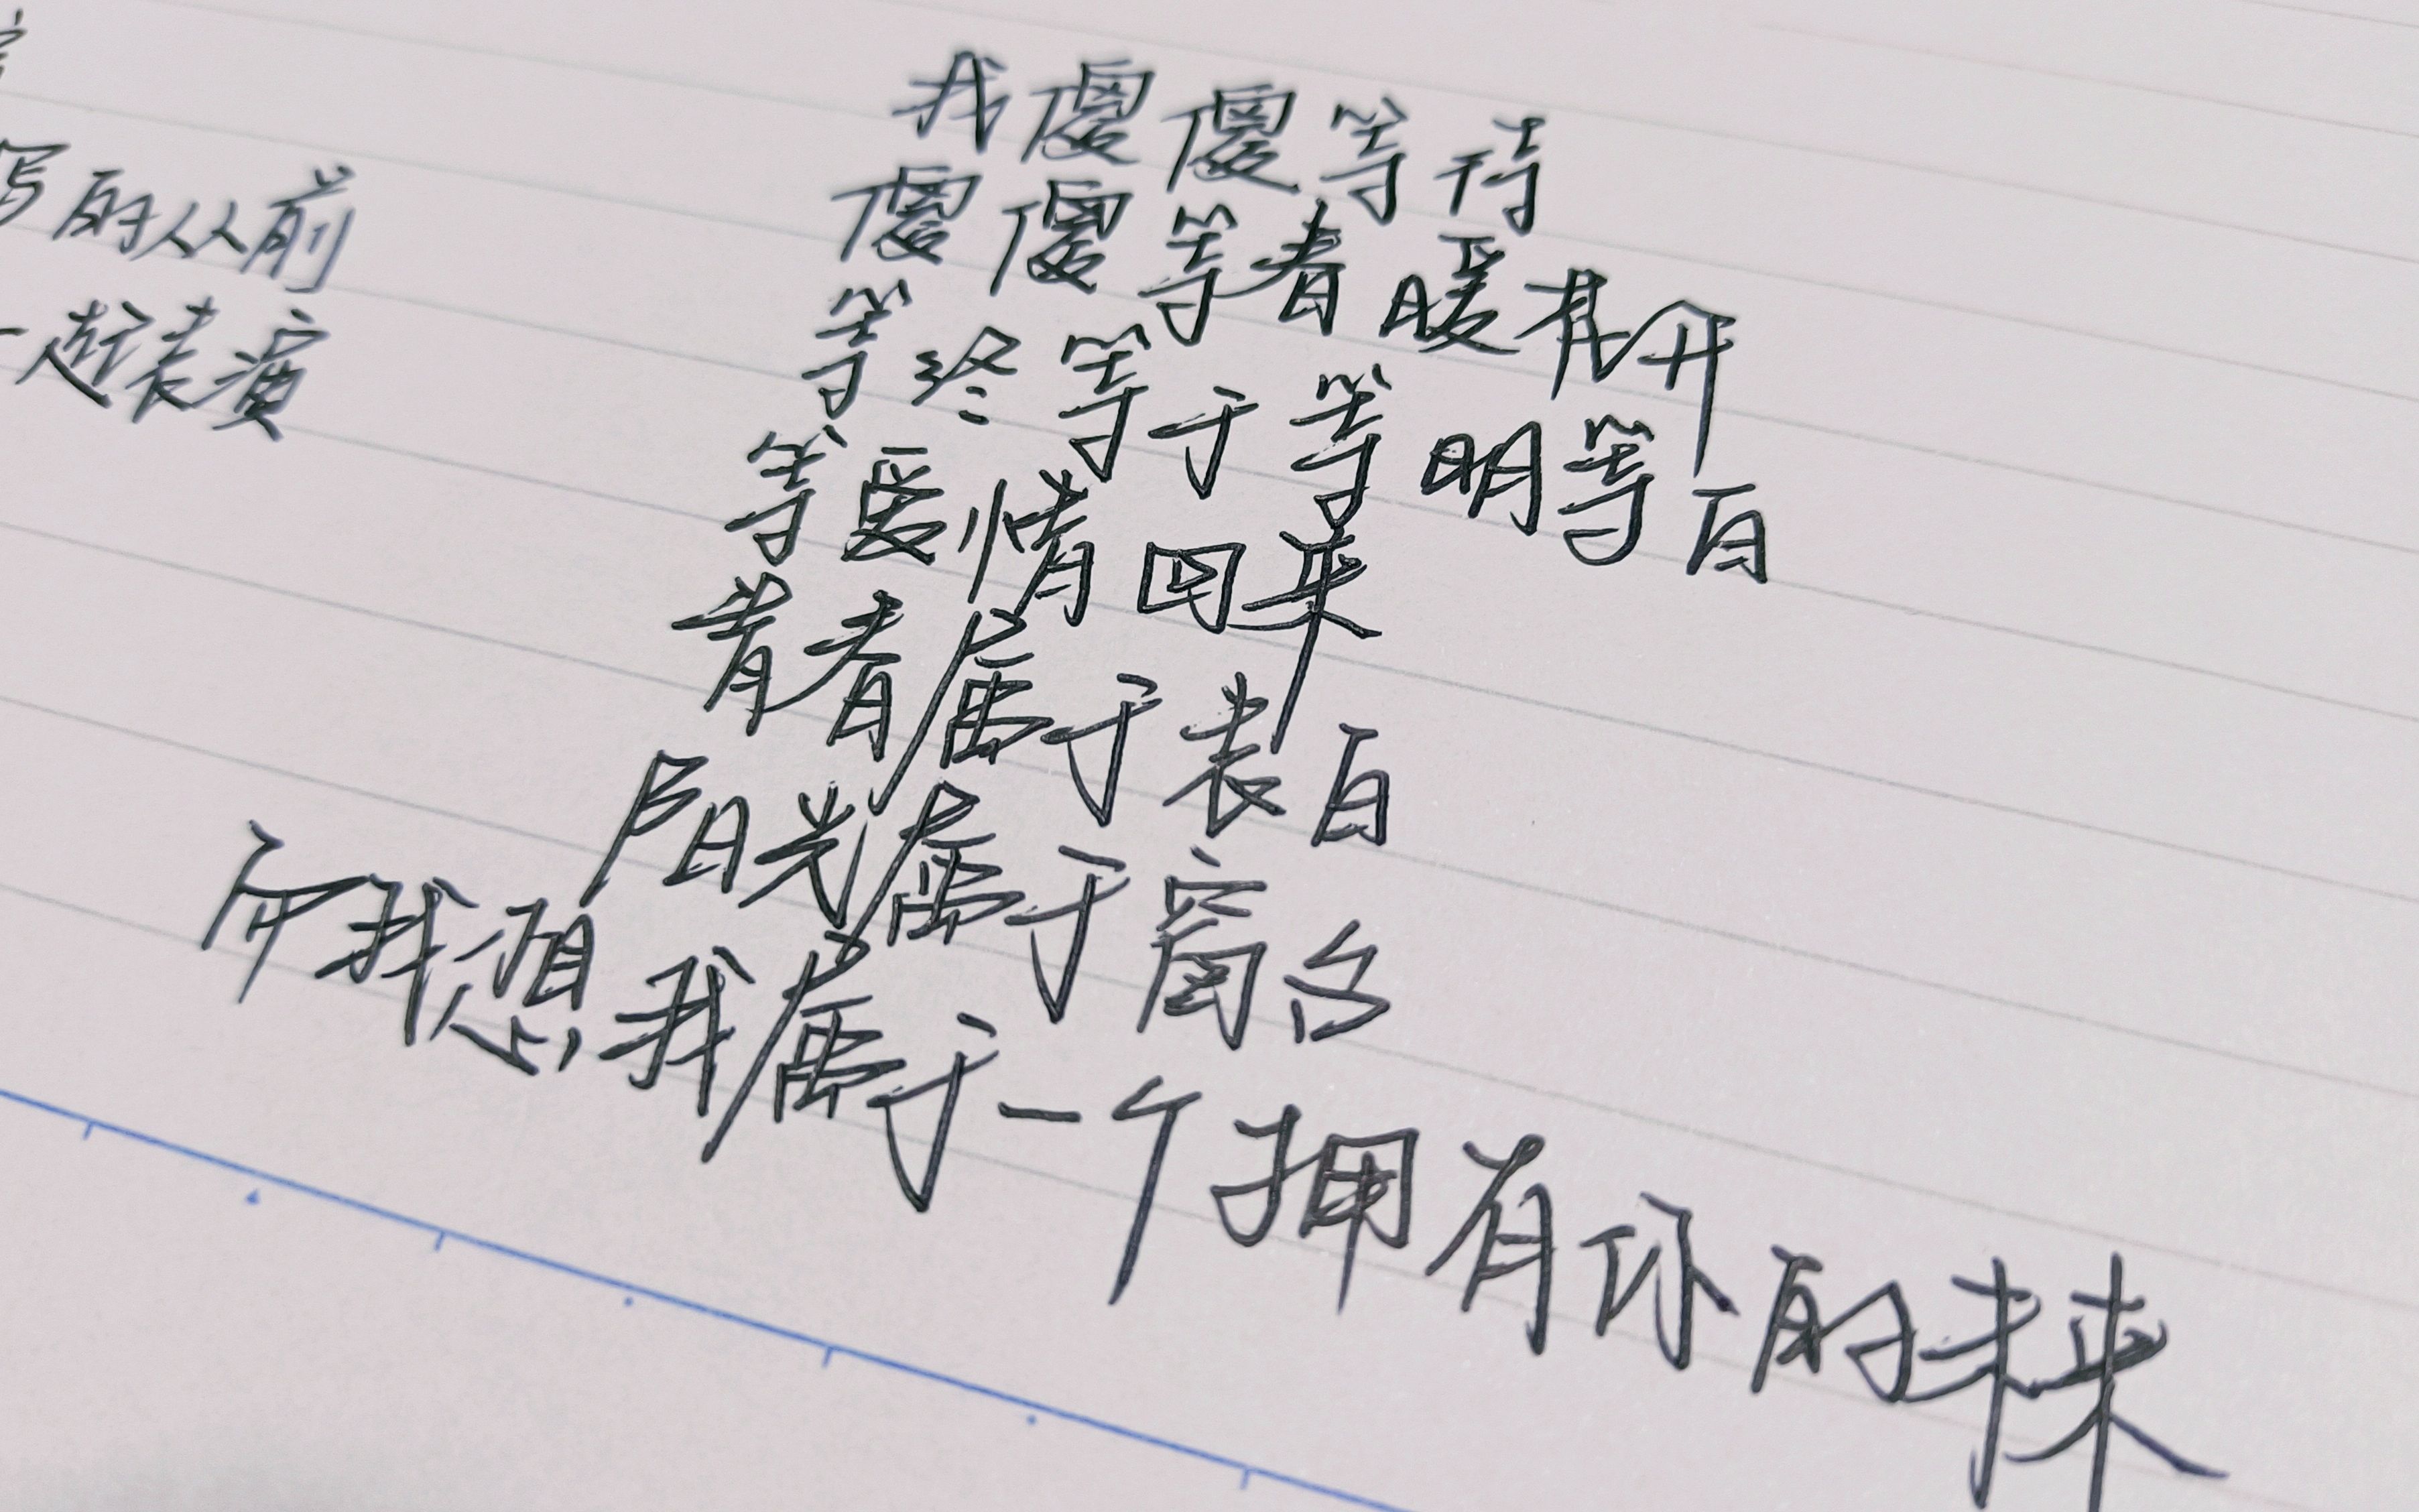 写的从前
一起表演
我傻傻等待
傻傻等春暖花开
等终等于等明等白
等爱情回来
青春属于表白
阳光属于窗台
而我想我属于一个拥有你的未来